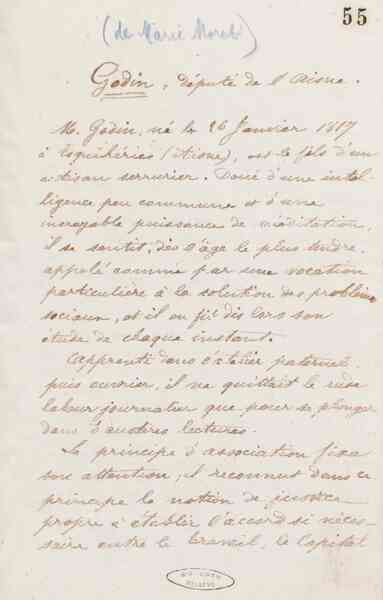 55
(de Marie Moret)
Godin, député de l'Aisne.
M. Godin, né le 26 Janvier 1817
à Esquéhéries (Aisne), est le fils d'un
artisan serrurier. Doué d'une intel-
ligence peu commune et d'une
incroyable puissance de méditation,
il se sentit, dès l'âge le plus tendre,
appelé comme par une vocation
particulière à la solution des problèmes
sociaux, et il en fit dès lors son
étude de chaque instant.
Apprenti dans l'atelier paternel
puis ouvrier, il ne quittait le rude
labeur journalier que pour se plonger
dans d'austères lectures.
Le principe d'association fixa
son attention; il reconnut dans ce
principe la notion de justice
propre à établir l'accord si néces-
saire entre le travail, le capital